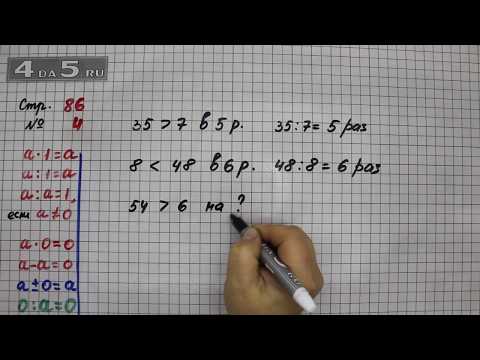 4 DA 5.RU
Стр. 86
№ 4
a · 1 = a
a : 1 = a
a : a = 1,
если a ≠ 0
a · 0 = 0
a - a = 0
a ± 0 = a
0 : a = 0
35 > 7 в 5 р. 35 : 7 = 5 раз
8 < 48 в 6 р. 48 : 8 = 6 раз
54 > 6 на ?